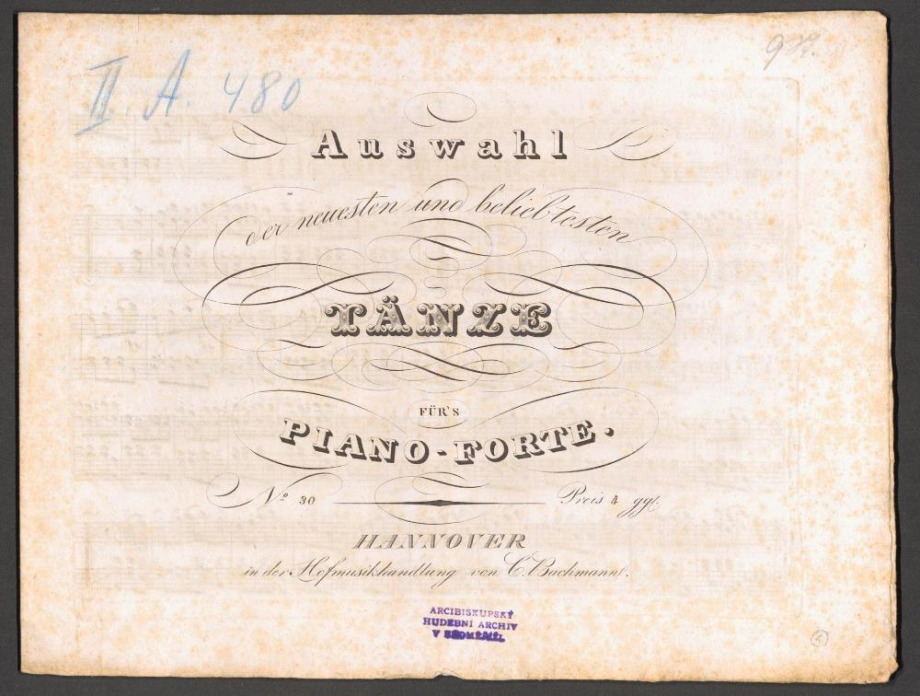 II. A. 480
Auswahl
der neuesten und beliebtesten
TÄNZE
FÜR'S
PIANO-FORTE.
No 30 Preis 4 ggl.
HANNOVER
in der Hofmusikhandlung von C. Bachmann.
ARCIBISKUPSKÝ
HUDEBNÍ ARCHIV
V